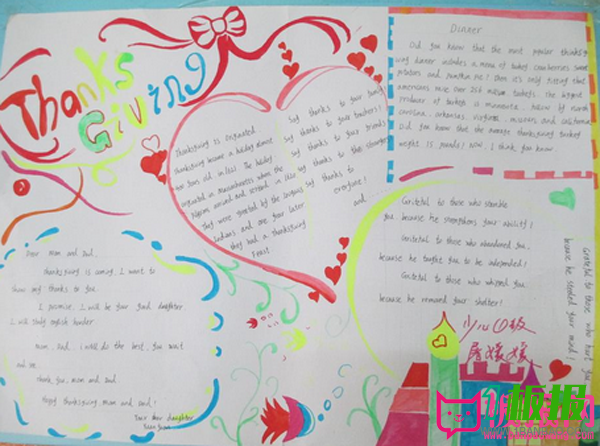 Thanks
Giving
Thanksgiving is originated
Thanksgiving become a holiday almost
four years old in 1621. The holiday
originated in Massachusetts where the
Pilgrims arrived and settled in 1620
They were greeted by the
Indians and one year later
they had a thanksgiving
Feast
Say thanks to your family
Say thanks to your teachers!
Say thanks to your friends
Say thanks to the strangers
Say thanks to
everyone!
and
Dinner
Did you know that the most popular thanksgi-
ving dinner includes a menu of turkey cranberries sweet
potatoes and pumpkin pie? then it's only fitting that
americans raise over 256 million turkeys. The biggest
producer of turkeys is minnesota, follow by north
carolina, arkansas, virginia, missouri and california
Did you know that the average thanksgiving turkey
weight is pounds! Now, I think you know.
Dear mom and dad.
thanksgiving is coming. I want to
show my thanks to you.
I promise. I will be your good daughter
I will study english harder
mom, dad. i will do the best. You wait
and see.
Thank you, mom and dad.
Happy thanksgiving mom and dad!
Your dear daughter
Grateful to those who stumble
you because he strengthens your ability!
Grateful to those who abandoned you,
because he taught you to be independed!
Grateful to those who whipped you
because he removed your shelter!
Grateful to those who hurt you
because he steeled your mind!
板报